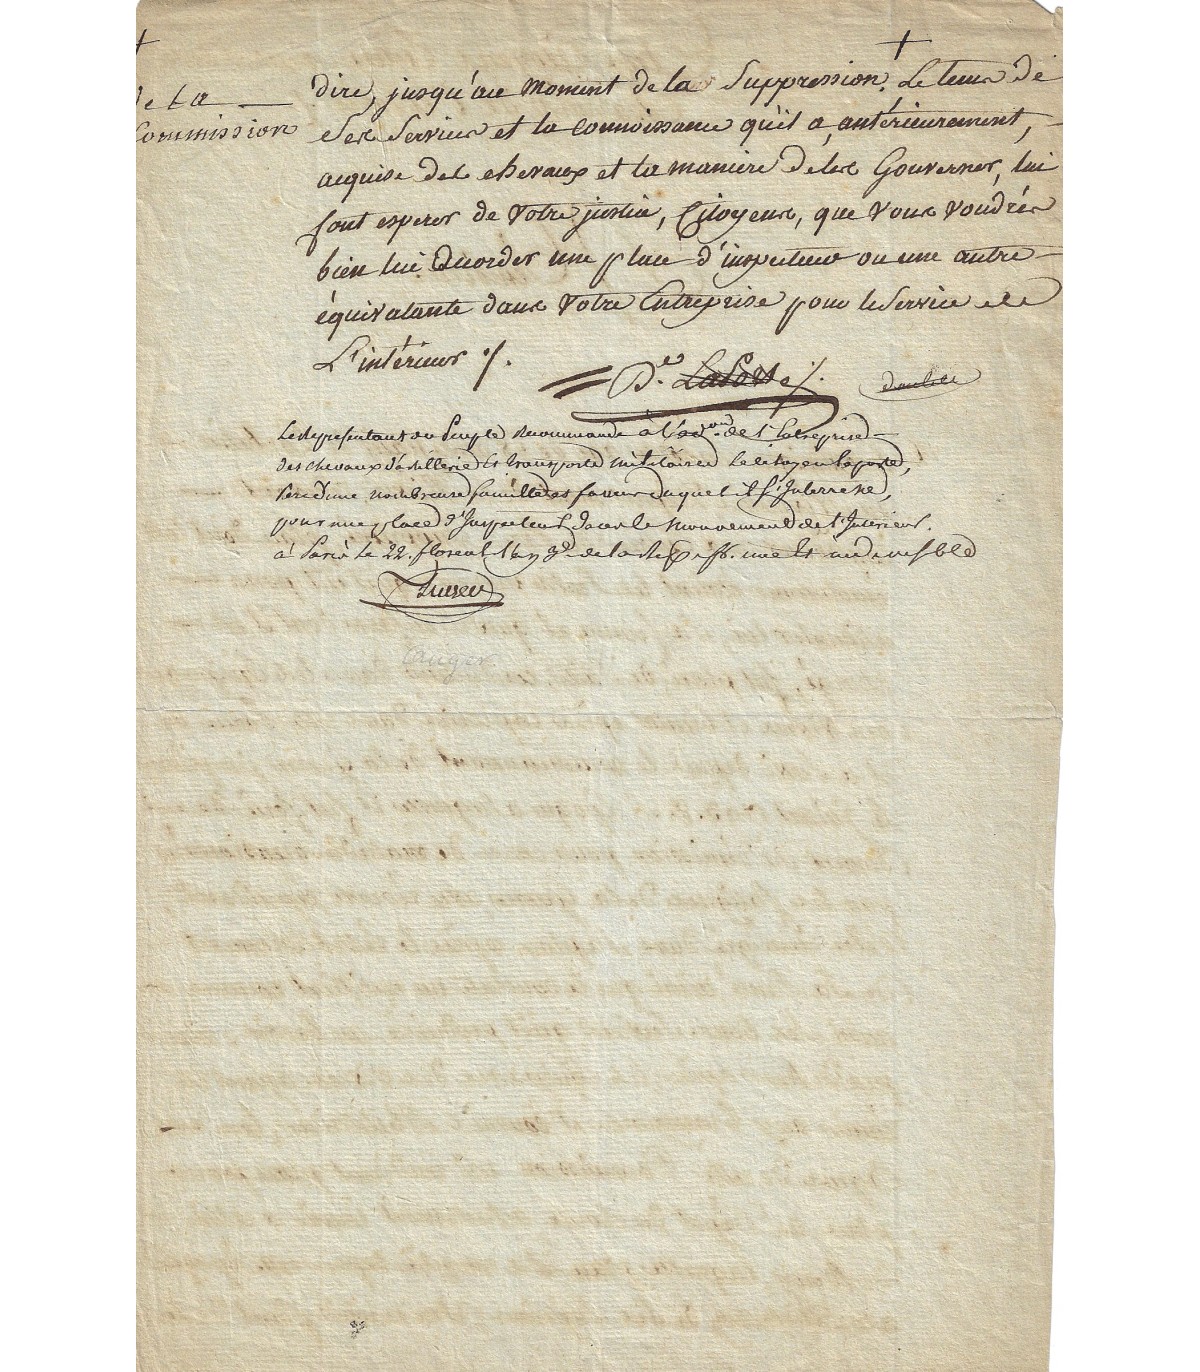 + +
de La
Commission
dire, jusqu'au moment de la Suppression. Le tems de
Ses Services et la connoissance qu'il a, antérieurement,
acquise des chevaux et la manière de les Gouverner, lui
font esperer de Votre justice, Citoyens, que Vous Voudrés
bien lui accorder une place d'inspecteur ou une autre
équivalante dans Votre Entreprise pour le Service de
L'intérieur ./.
De. Laporte ./.
Le Représentant du Peuple Recommande à l'ad.on de l'Entreprise
des chevaux d'artillerie et transports militaires le citoyen Laporte,
Pere d'une nombreuse famille en faveur duquel il s'interresse,
pour une place d'Inspecteur dans le mouvement de l'Interieur.
à Paris le 22. floreal l'an 3e de la Rep. f. une et indivisible
Auger.